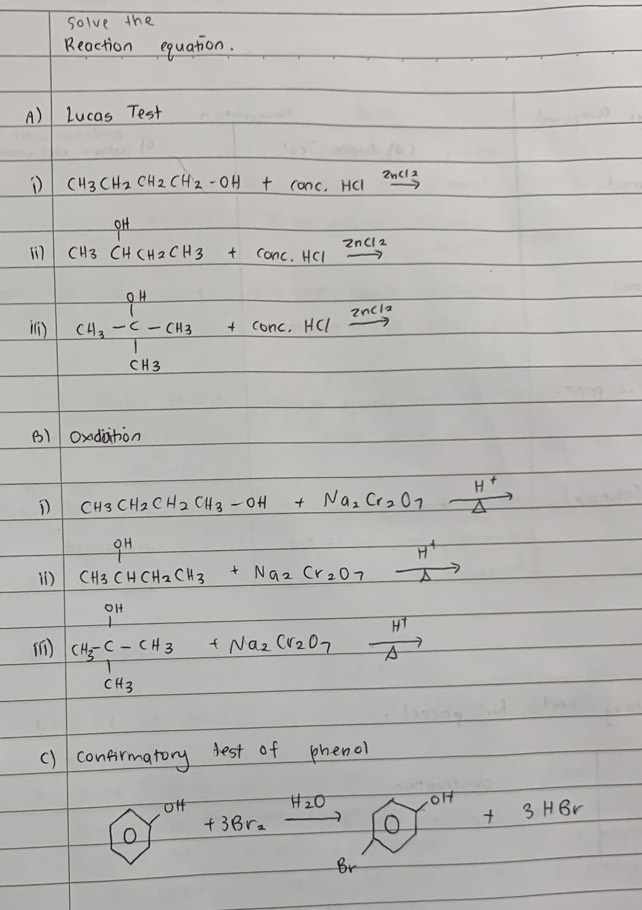 Solve the
Reaction equation.
A) Lucas Test
i) CH3CH2 CH2CH2 - OH + conc. HCl ZnCl2 →
OH
ii) CH3 CHCH2CH3 + conc. HCl ZnCl2 →
OH
iii) CH3 - C - CH3 + conc. HCl ZnCl2 →
CH3
B) Oxidation
i) CH3CH2CH2CH3 - OH + Na2Cr2O7 H+ Δ →
OH
ii) CH3CHCH2CH3 + Na2Cr2O7 H+ Δ →
OH
iii) CH3-C - CH3 + Na2Cr2O7 H+ Δ →
CH3
C) Confirmatory test of phenol
OH + 3Br2 H2O → OH + 3HBr
Br